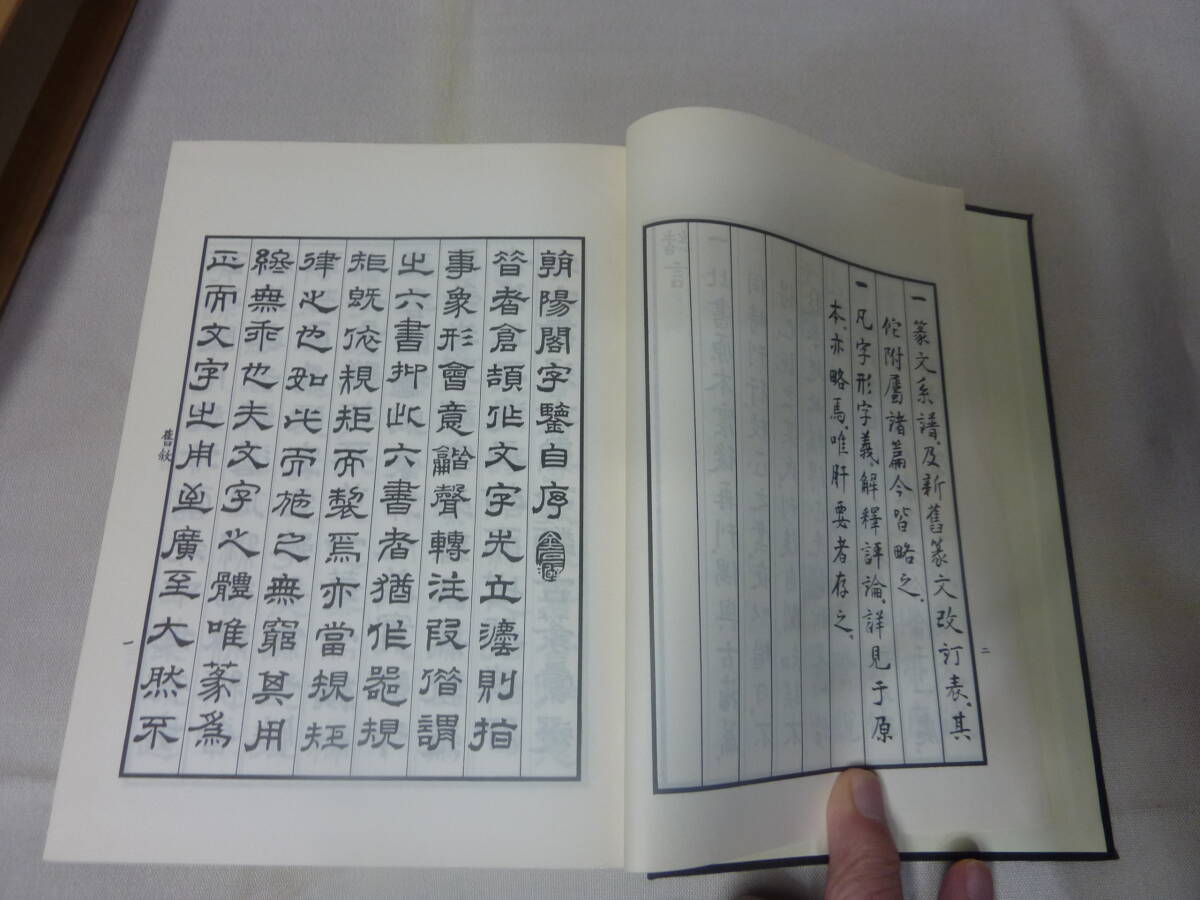 一 篆文系譜、及新舊篆文改訂表、其
佗附屬諸篇今皆略之、
一 凡字形字義、解釋評論、詳見于原
本、亦略焉、唯肝要者存之、
二
朝陽閣字鑒自序
昔者倉頡作文字先立灋則指
事象形會意龤聲轉注叚借謂
之六書抑此六書者猶作器規
矩既依規矩而製焉亦當規矩
律之也如此而施之無窮其用
終無乖也夫文字之體唯篆爲
正而文字之用至廣至大然不
舊敘
一